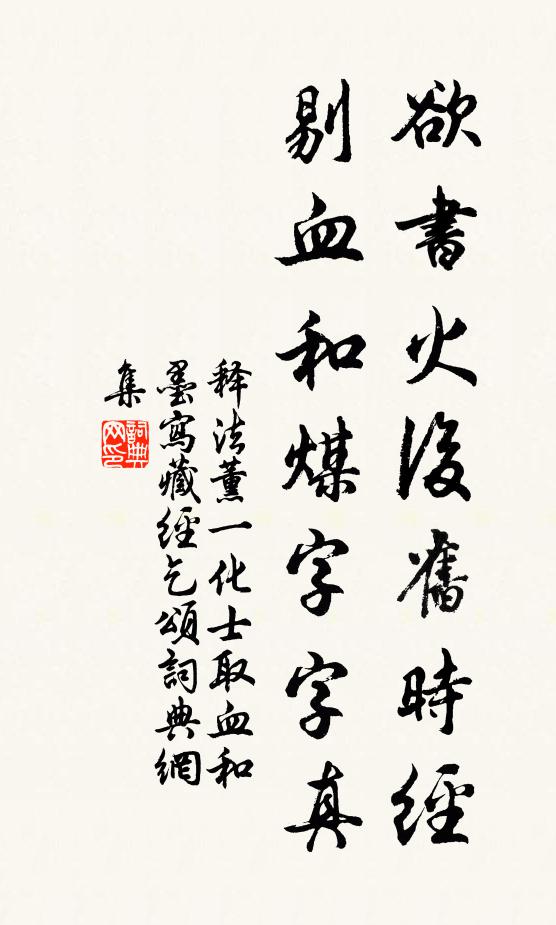 欲書火後舊時經
剔血和煤字字真
释法薰一化士取血和
墨寫藏經乞頌詞典網
集
詞典网印